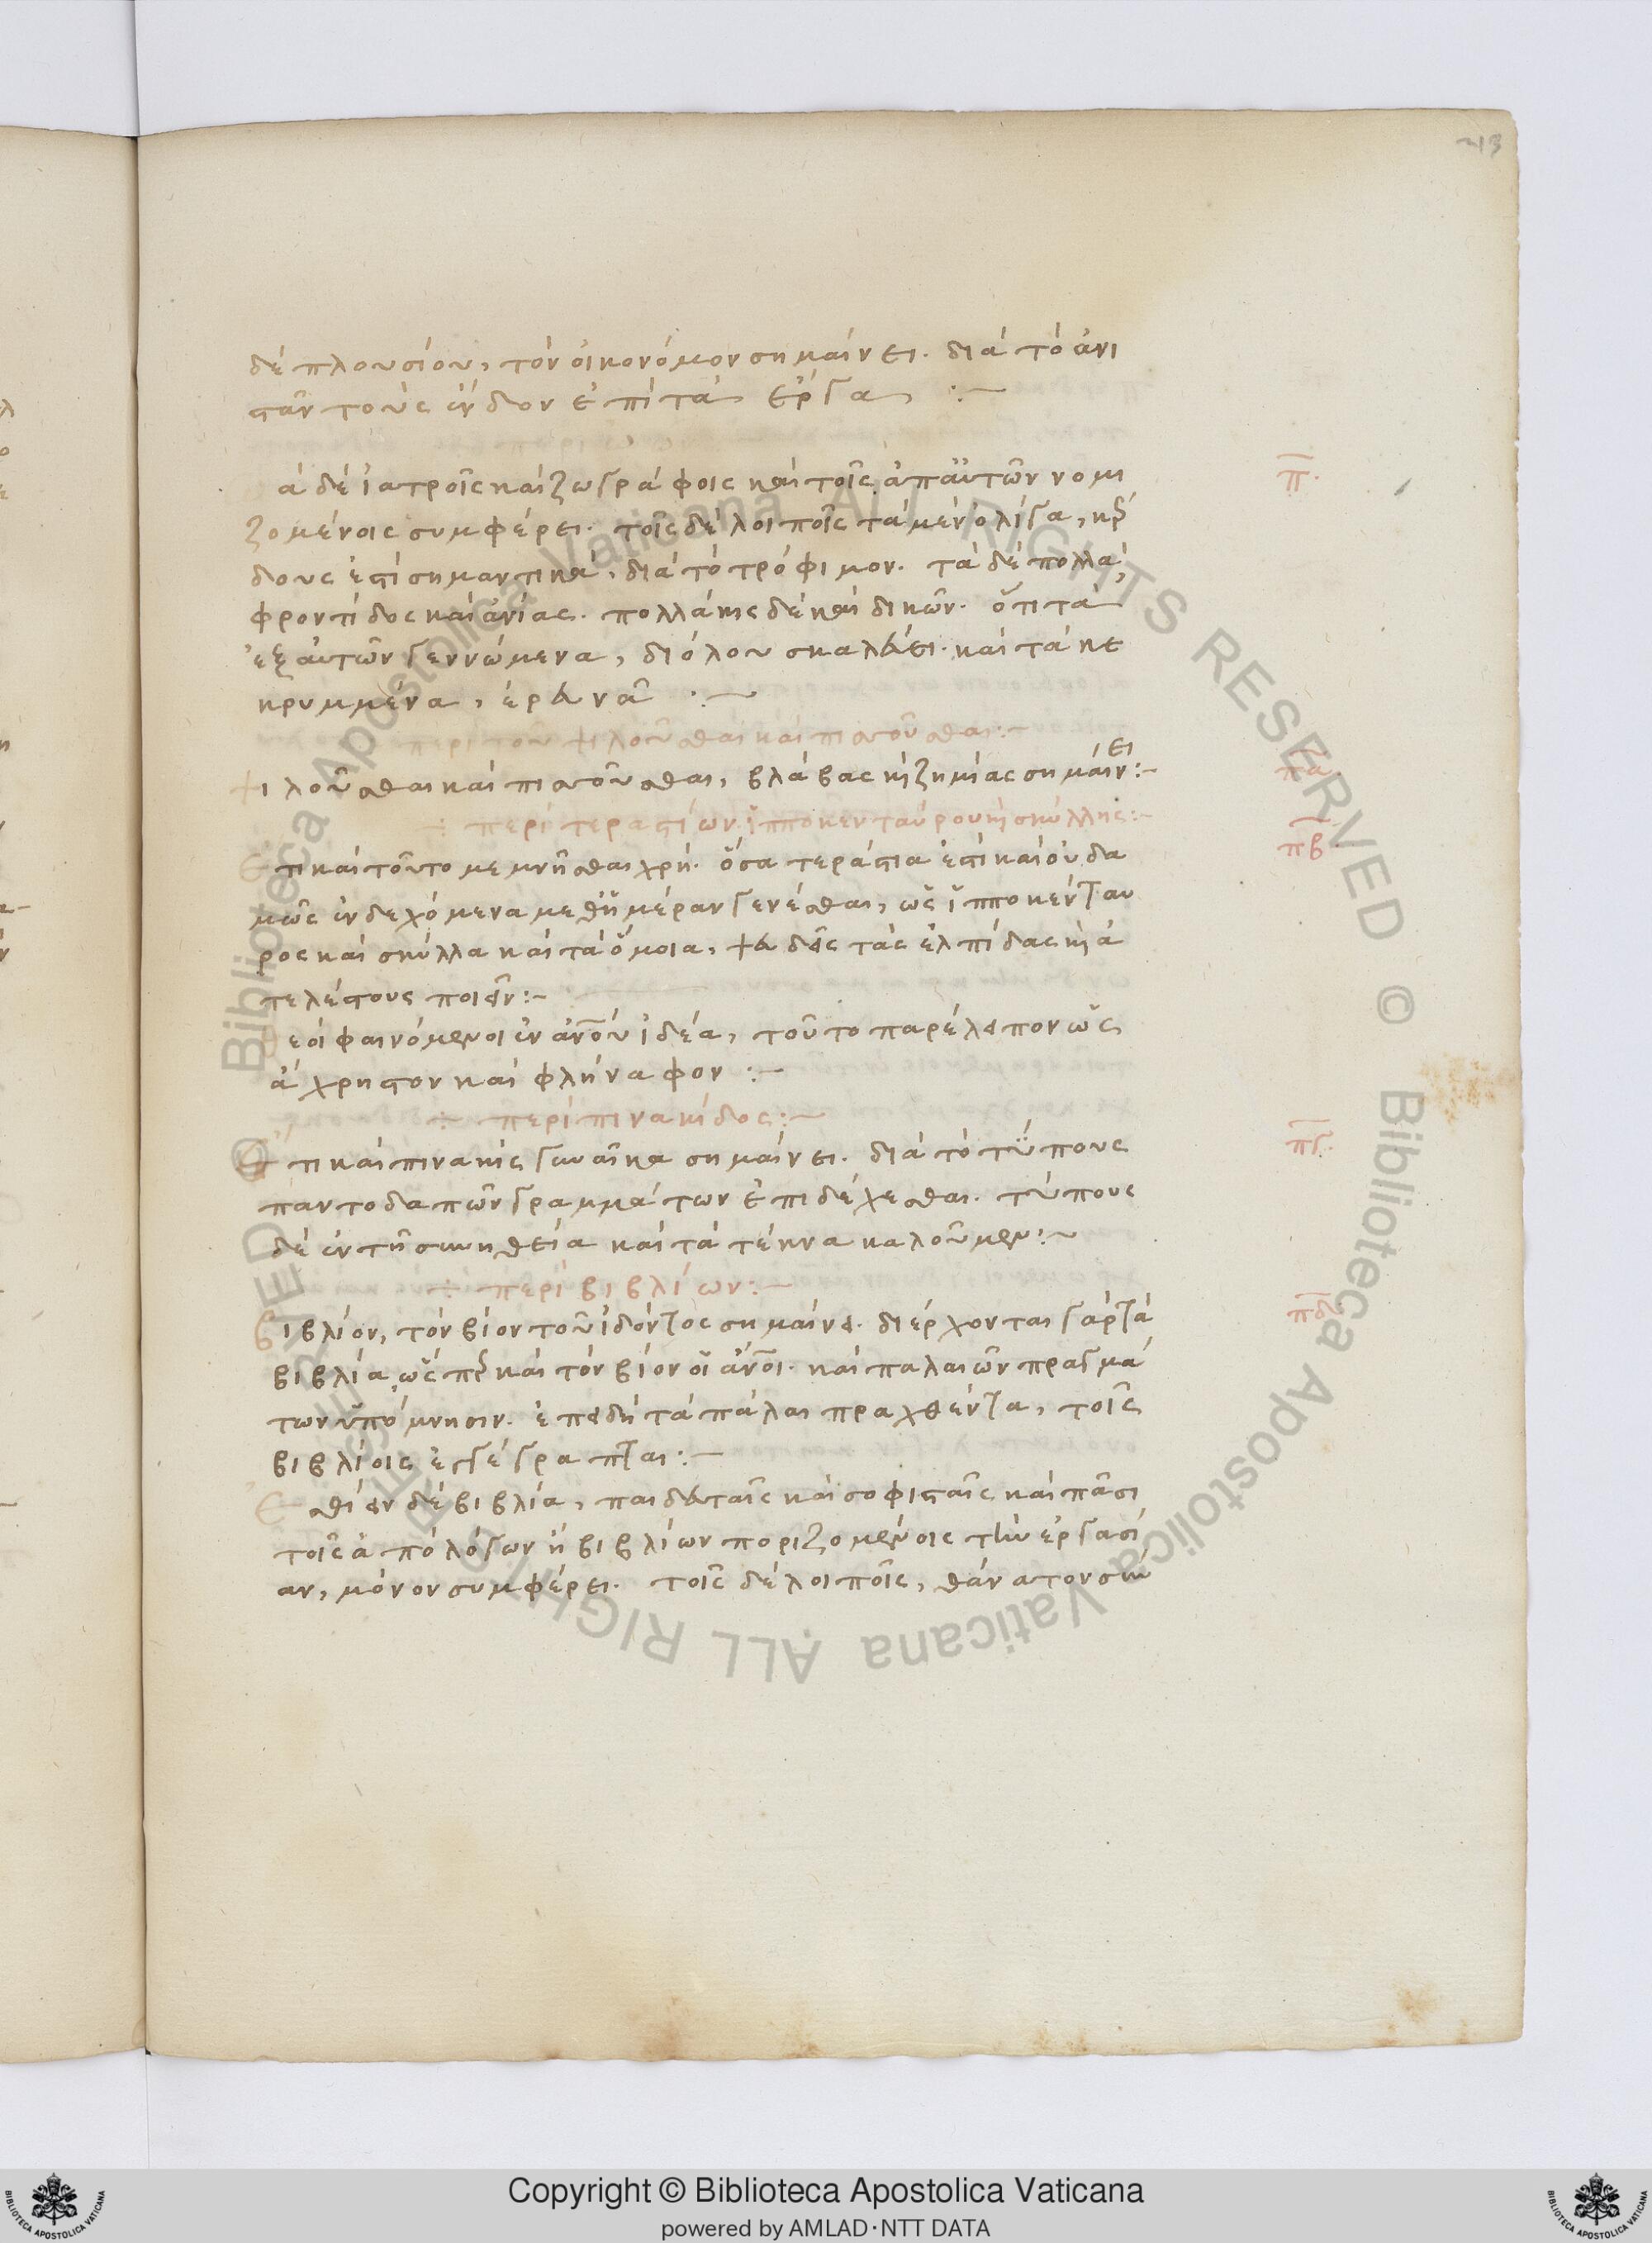 213
δὲ πλουσίου, τὸν οἰκονόμον σημαίνει. διὰ τὸ ἀνι
στᾶν τοὺς ἔνδον ἐπὶ τὰ ἔργα :~
ὰ δὲ ἰατροῖς καὶ ζωγράφοις καὶ τοῖς ἀπ' αὐτῶν νομι
ζομένοις συμφέρει. τοῖς δὲ λοιποῖς τὰ μὲν ὀλίγα, κέρ
δους ἐστὶ σημαντικὰ, διὰ τὸ τρόφιμον. τὰ δὲ πολλὰ,
φροντίδος καὶ ἀνίας. πολλάκις δὲ καὶ δικῶν. ὅτι τὰ
ἐξ αὐτῶν γεννώμενα, διόλου σκαλεύει. καὶ τὰ κε
κρυμμένα, ἐρευνᾶ :~
περὶ τοῦ ψιλοῦσθαι καὶ πισσοῦσθαι :~
ψιλοῦσθαι καὶ πισσοῦσθαι, βλάβας καὶ ζημίας σημαίνει :~
πα
÷ περὶ τεραστίων ἱπποκενταύρου καὶ σκύλλης :~
Ἔτι καὶ τοῦτο μεμνῆσθαι χρή. ὅσα τεράστια ἐστὶ καὶ οὐδα
πβ
μῶς ἐνδεχόμενα μεθ' ἡμέραν γενέσθαι, ὡς ἱπποκένταυ
ρος καὶ σκύλλα καὶ τὰ ὅμοια, ψευδεῖς τὰς ἐλπίδας καὶ ἀ
τελέστους ποιεῖν :~
Θεοὶ φαινόμενοι ἐν ἀνου ἰδέα, τοῦτο παρέλειπον ὡς
ἄχρηστον καὶ φλήναφον :~
÷ περὶ πινακίδος :~
Ὅτι καὶ πινακὶς γυναῖκα σημαίνει. διὰ τὸ τύπους
πγ
παντοδαπῶν γραμμάτων ἐπιδέχεσθαι. τύπους
δὲ ἐν τῆ συνηθεία καὶ τὰ τέκνα καλοῦμεν :~
÷ περὶ βιβλίων :~
Βιβλίον, τὸν βίον τοῦ ἰδόντος σημαίνει. διέρχονται γὰρ τὰ
πδ
βιβλία, ὥσπερ καὶ τὸν βίον οἱ ἄνοι. καὶ παλαιῶν πραγμά
των ὑπόμνησιν. ἐπειδὴ τὰ πάλαι πραχθέντα, τοῖς
βιβλίοις ἐγγέγραπται :~
Ἐσθίειν δὲ βιβλία, παιδευταῖς καὶ σοφισταῖς καὶ πᾶσι
τοῖς ἀπὸ λόγων ἢ βιβλίων ποριζομένοις τὴν ἐργασί
αν, μόνον συμφέρει. τοῖς δὲ λοιποῖς, θάνατον σύν
π
Copyright © Biblioteca Apostolica Vaticana
powered by AMLAD·NTT DATA
© Biblioteca Apostolica Vaticana ALL RIGHTS RESERVED © Biblioteca Apostolica Vaticana ALL RIGHTS RESERVED
BIBLIOTECA APOSTOLICA VATICANA
BIBLIOTECA APOSTOLICA VATICANA